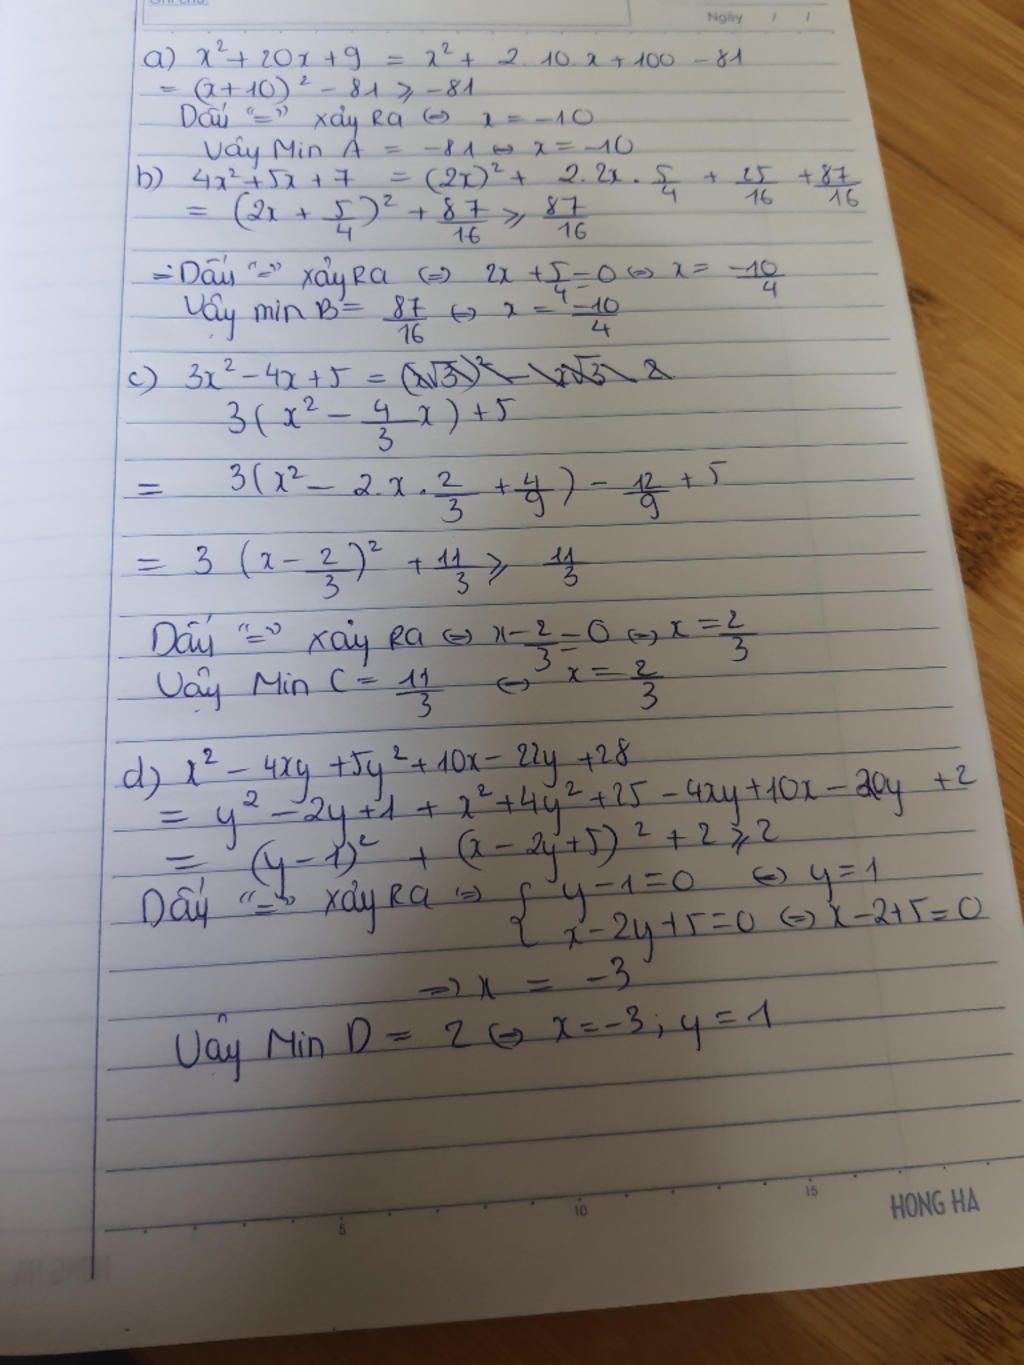 Ngày / /
a) x² + 20x + 9 = x² + 2.10.x + 100 - 81
= (x+10)² - 81 ⩾ -81
Dấu "=" xảy Ra ⇔ x = -10
Vậy Min A = -81 ⇔ x = -10
b) 4x² + 5x + 7 = (2x)² + 2.2x.5/4 + 25/16 + 87/16
= (2x + 5/4)² + 87/16 ⩾ 87/16
=> Dấu "=" xảy Ra ⇔ 2x + 5/4 = 0 ⇔ x = -10/4
Vậy min B = 87/16 ⇔ x = -10/4
c) 3x² - 4x + 5 = (x√3)² - x√3.2
3(x² - 4/3 x) + 5
= 3(x² - 2.x.2/3 + 4/9) - 12/9 + 5
= 3 (x - 2/3)² + 11/3 ⩾ 11/3
Dấu "=" xảy Ra ⇔ x - 2/3 = 0 ⇔ x = 2/3
Vậy Min C = 11/3 ⇔ x = 2/3
d) x² - 4xy + 5y² + 10x - 22y + 28
= y² - 2y + 1 + x² + 4y² + 25 - 4xy + 10x - 20y + 2
= (y - 1)² + (x - 2y + 5)² + 2 ⩾ 2
Dấu "=" xảy Ra => { y - 1 = 0 ⇔ y = 1
x - 2y + 5 = 0 ⇔ x - 2 + 5 = 0
=> x = -3
Vậy Min D = 2 ⇔ x = -3; y = 1
5 10 15
HONG HA